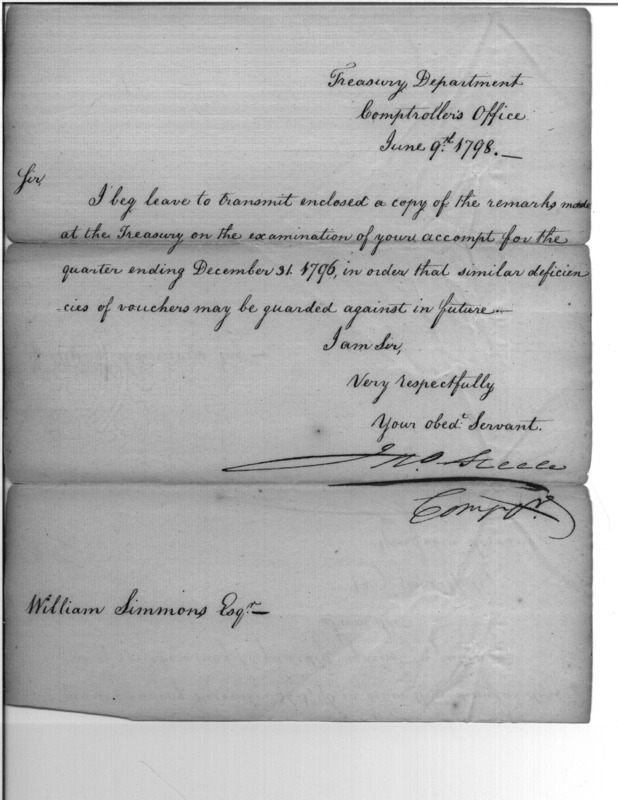 Treasury Department
Comptroller's Office
June 9.th 1798.
Sir,
I beg leave to transmit enclosed a copy of the remarks made
at the Treasury on the examination of your accompt for the
quarter ending December 31. 1796, in order that similar deficien
-cies of vouchers may be guarded against in future.
I am Sir,
Very respectfully
Your obed.t Servant.
Jno. Steele
Comptr.
William Simmons Esqr.